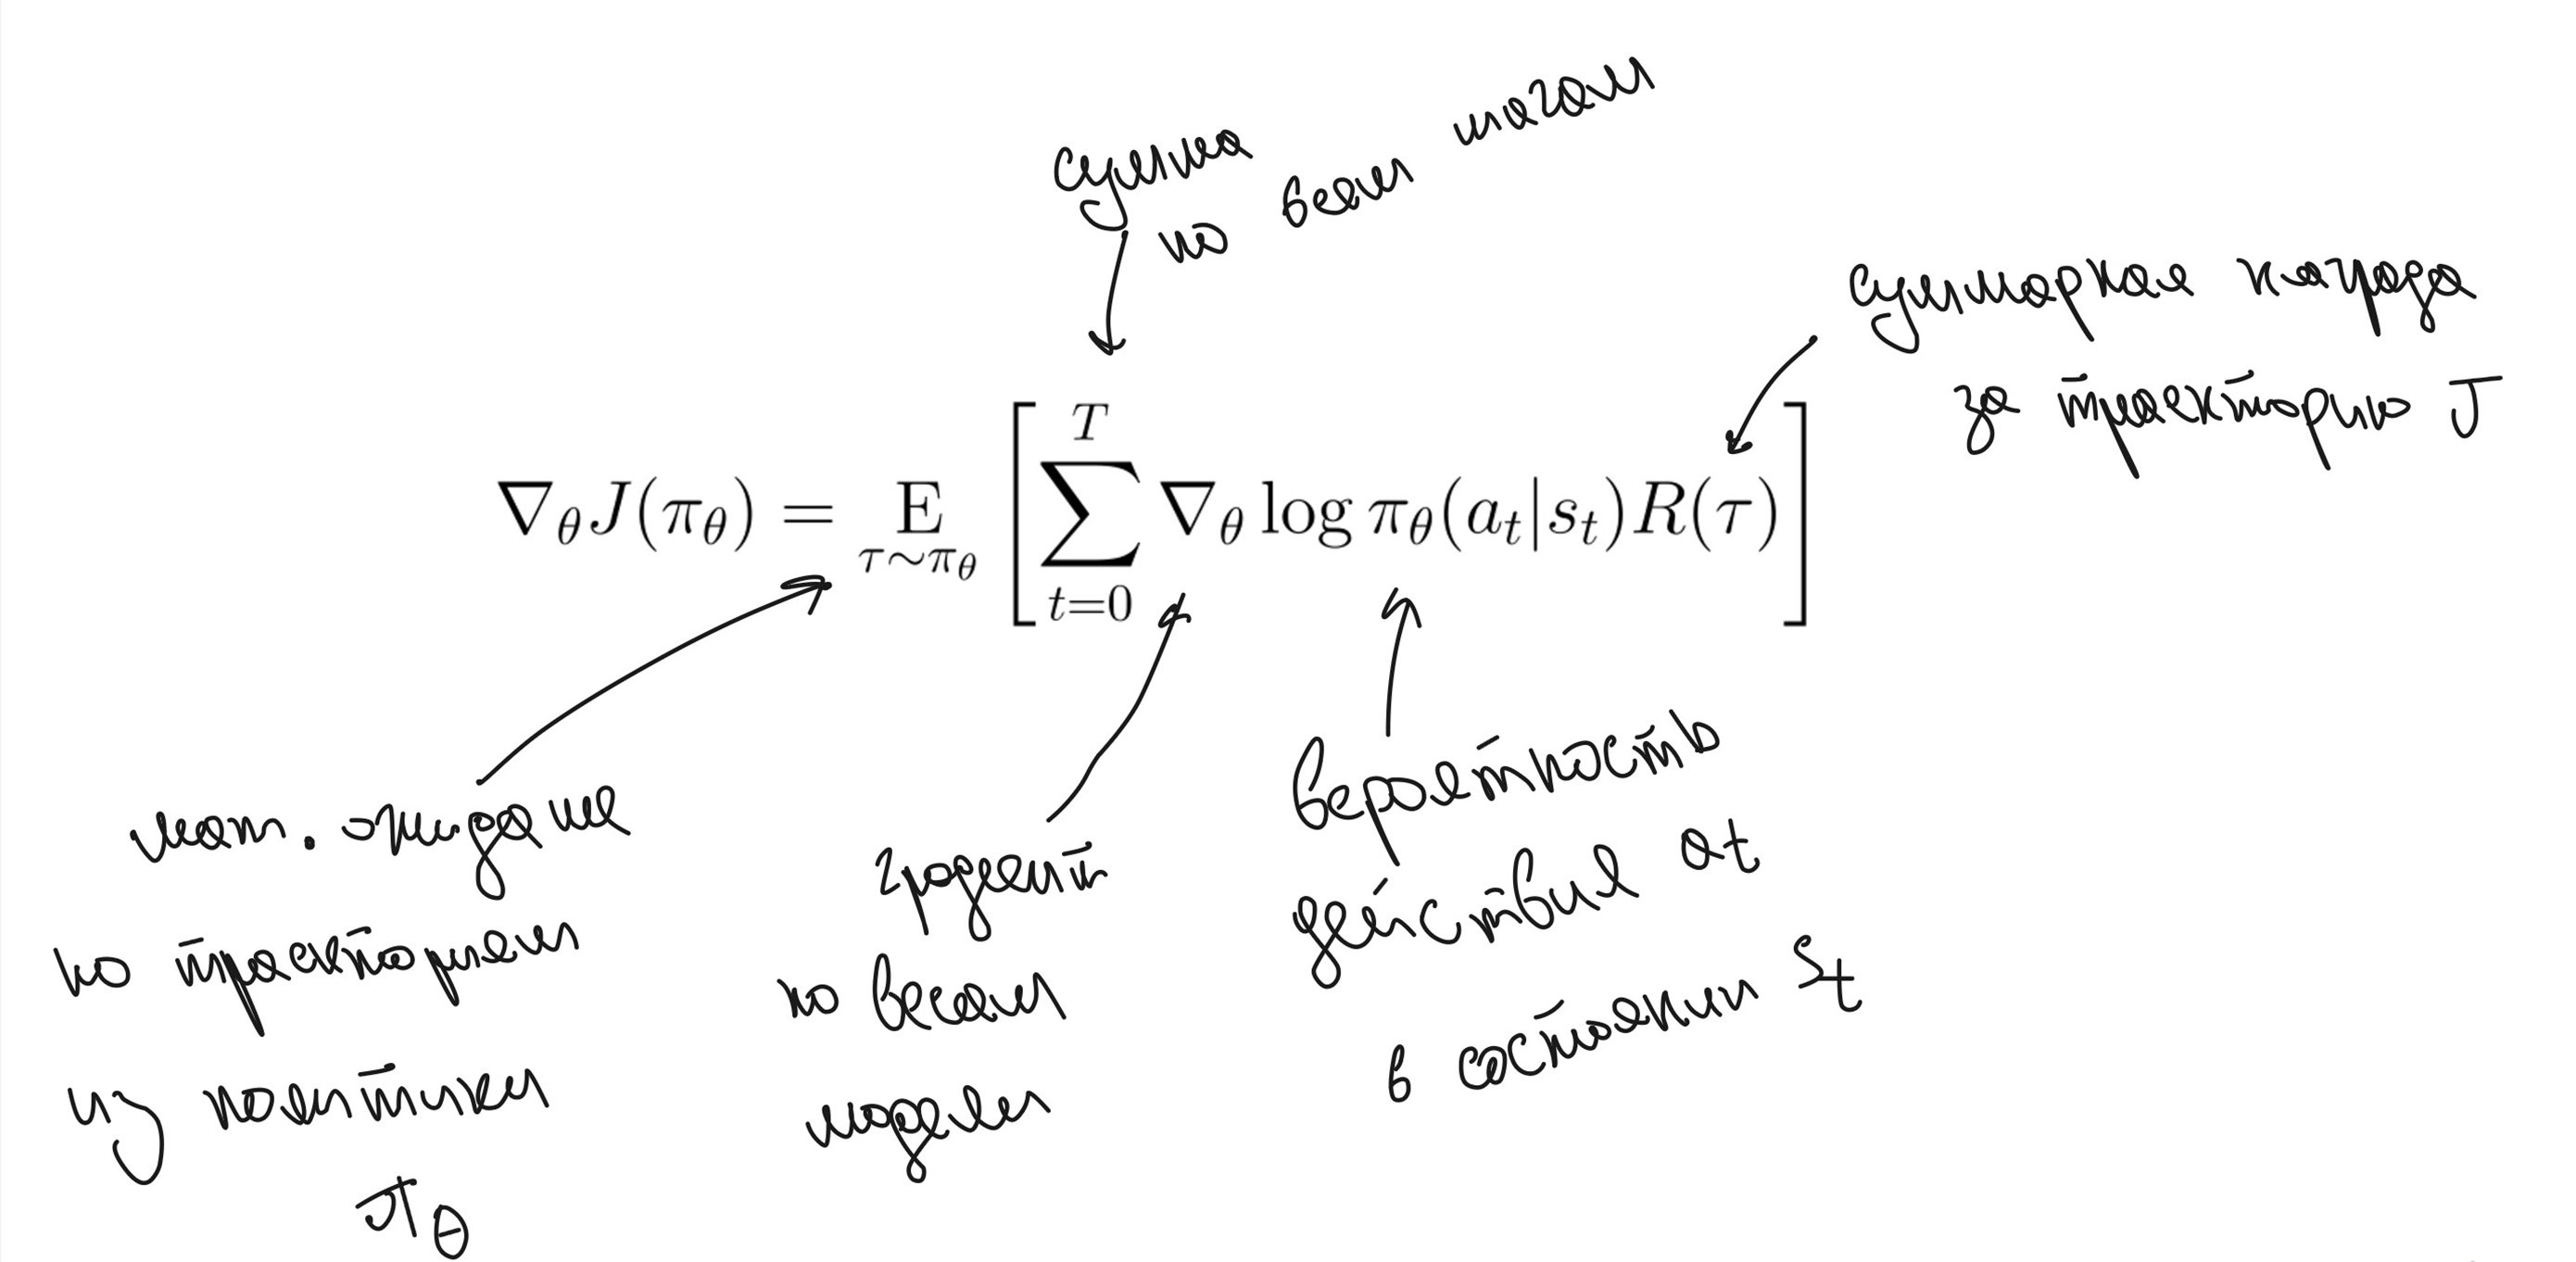 сумма
по всем шагам
суммарная награда
за траекторию τ
∇_θ J(π_θ) = E_{τ∼π_θ} [ ∑_{t=0}^{T} ∇_θ log π_θ(a_t|s_t) R(τ) ]
мат. ожидание
по траекториям
из политики
π_θ
градиент
по весам
модели
вероятность
действия a_t
в состоянии s_t